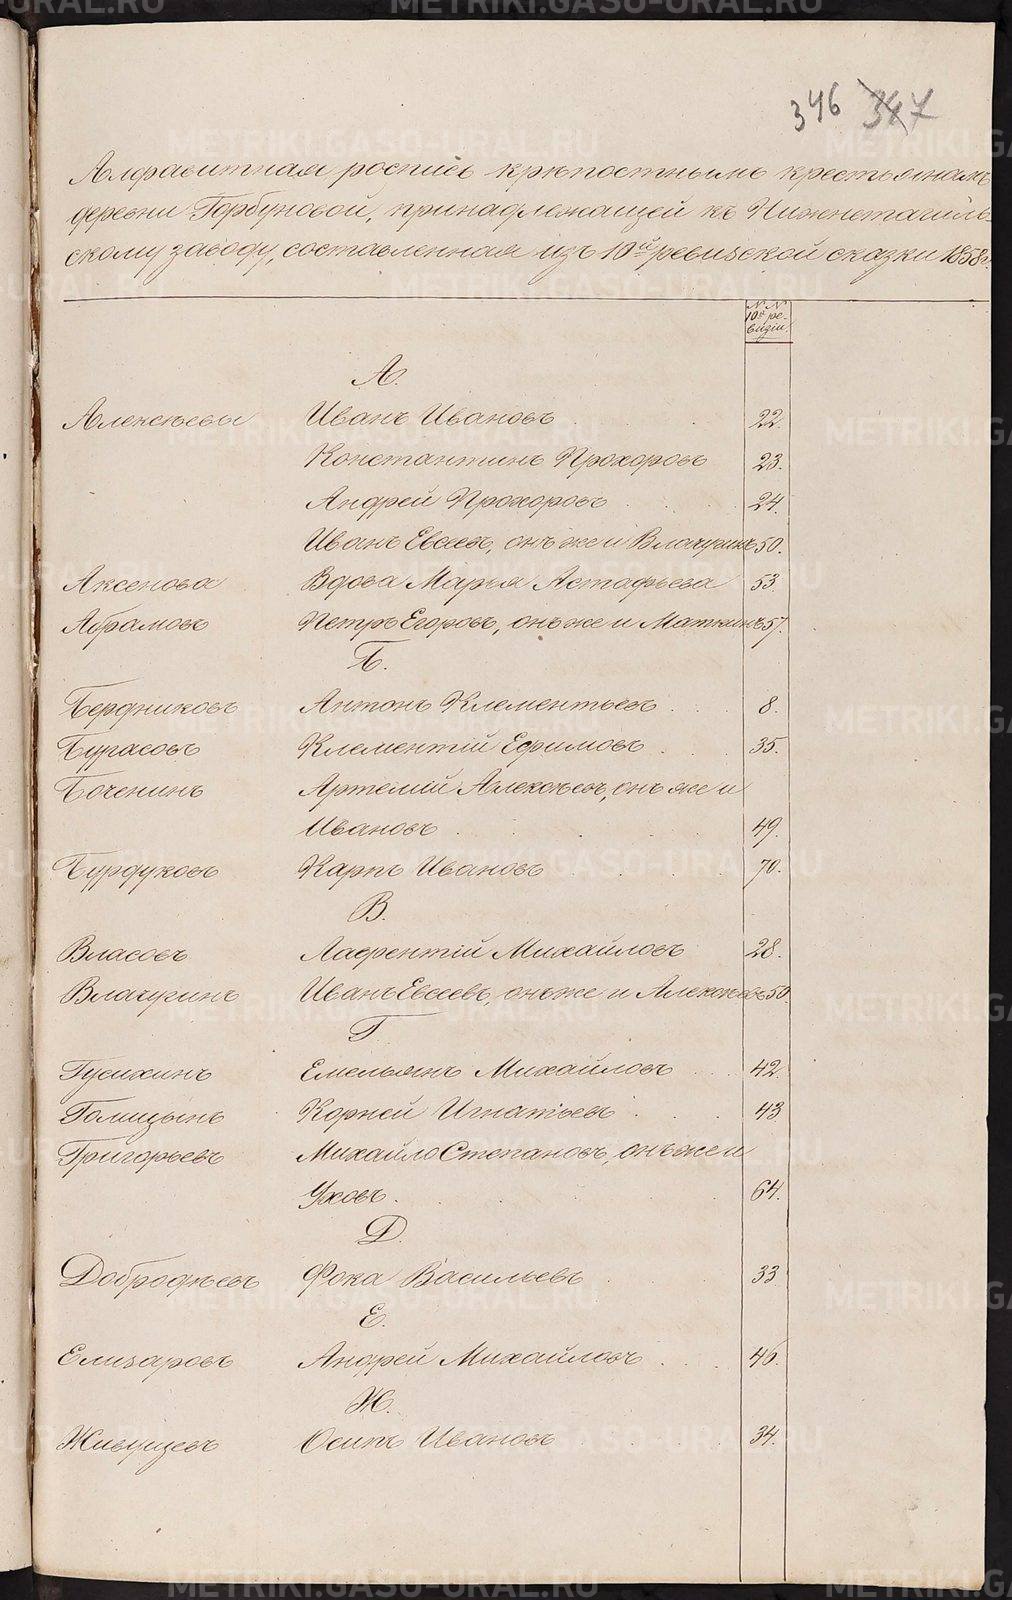 346 347
Алфавитная роспись крѣпостнымъ крестьянамъ
деревни Горбуновой, принадлежащей къ Нижнетагиль-
скому заводу, составленная изъ 10й ревизской сказки 1858 г.
N. N.
10й ре-
визіи.
А.
Алексѣевы Иванъ Ивановъ 22.
Константинъ Прохоровъ 23.
Андрей Прохоровъ 24.
Иванъ Евсеевъ, онъ же и Влачугинъ 50.
Аксенова Вдова Марья Астафьева 53.
Абрамовъ Петръ Егоровъ, онъ же и Маткинъ 57.
Б.
Бердниковъ Антонъ Клементьевъ 8.
Бурасовъ Клементій Ефимовъ 35.
Боченинъ Артемій Алексѣевъ, онъ же и
Ивановъ 49.
Бурдуковъ Карпъ Ивановъ 70.
В.
Власовъ Лаврентій Михайловъ 28.
Влачугинъ Иванъ Евсеевъ, онъ же и Алексѣевъ 50.
Г
Гусихинъ Емельянъ Михайловъ 42.
Голицынъ Корней Игнатьевъ 43.
Григорьевъ Михайло Степановъ, онъ же и
Уховъ. 64.
Д.
Добродѣевъ Фока Васильевъ 33.
Е.
Елизаровъ Андрей Михайловъ 46.
Ж.
Живущевъ Осипъ Ивановъ 34.
METRIKI.GASO-URAL.RU